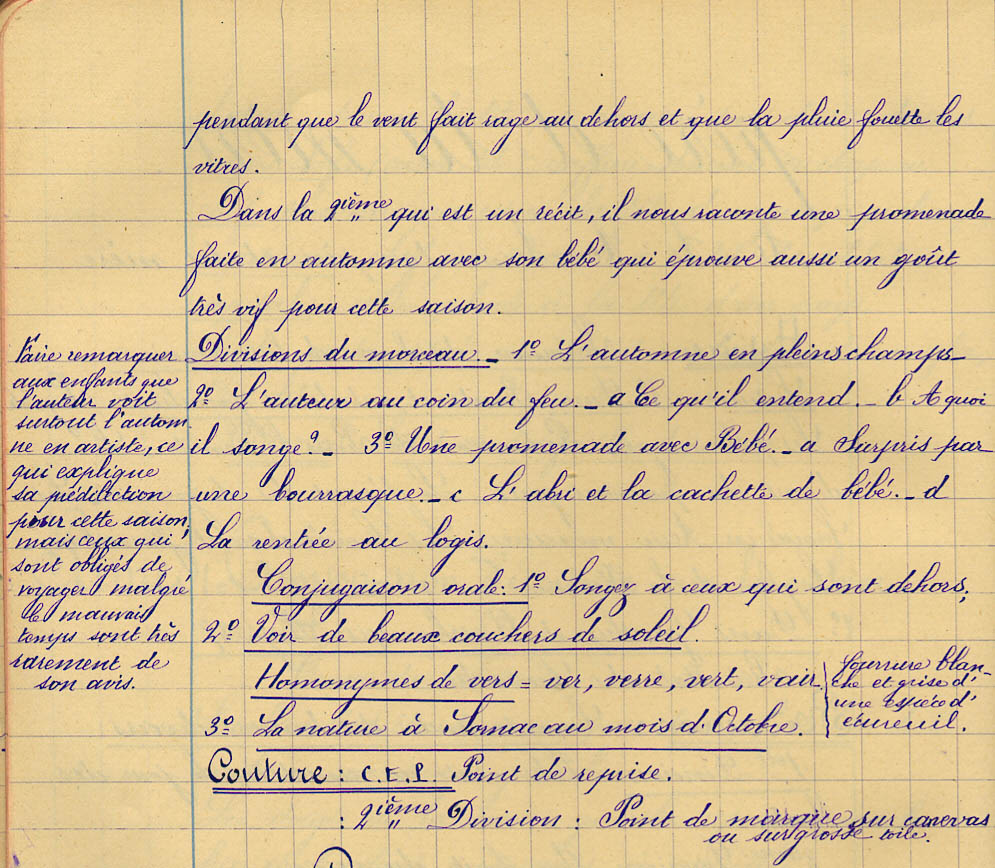 pendant que le vent fait rage au dehors et que la pluie fouette les
vitres.
Dans la 2ième qui est un récit, il nous raconte une promenade
faite en automne avec son bébé qui éprouve aussi un goût
très vif pour cette saison.
Divisions du morceau. _ 1º L'automne en pleins champs _
2º L'auteur au coin du feu. _ a Ce qu'il entend. _ b A quoi
il songe? _ 3º Une promenade avec Bébé. _ a Surpris par
une bourrasque. _ c L'abri et la cachette de bébé. _ d
La rentrée au logis.
Conjugaison orale: 1º Songez à ceux qui sont dehors,
2º Voir de beaux couchers de soleil.
Homonymes de vers = ver, verre, vert, vair.
fourrure blan-
che et grise d'
une espèce d'
écureuil.
3º La nature à Somac au mois d'Octobre.
Couture: C.E.P. Point de reprise.
: 2ième Division: Point de marque sur canevas
ou sur grosse toile.
Faire remarquer
aux enfants que
l'auteur voit
surtout l'autom
ne en artiste, ce
qui explique
sa prédilection
pour cette saison,
mais ceux qui
sont obligés de
voyager malgré
le mauvais
temps sont très
rarement de
son avis.